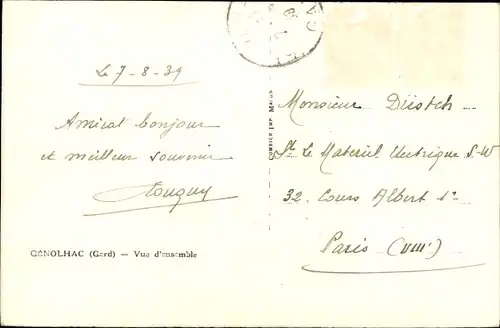 Le 7-8-39
Amical bonjour
et meilleur souvenir
GÉNOLHAC (Gard) — Vue d'ensemble
COMBIER IMP. MACON
Monsieur
Sté Le Matériel Électrique S-W
32. Cours Albert 1er
Paris (VIIIe)